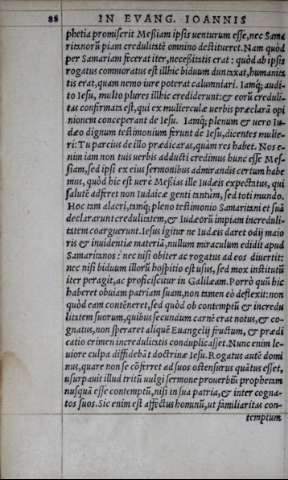 88 IN EVANG. IOANNIS
phetia promiserit Meßiam ipsis uenturum esse, nec Sama
ritanorũ piam credulitatẽ omnino destitueret. Nam quòd
per Samariam fecerat iter, neceßitatis erat: quòd ab ipsis
rogatus commoratus est illhic biduum duntaxat, humanita
tis erat, quam nemo iure poterat calumniari. Iamq́; audi-
to Iesu, multo plures illhic crediderunt: & eorũ creduli-
tas confirmata est, qui ex mulierculæ uerbis præclarã opi
nionem conceperant de Iesu. Iamq́; plenum & uero Iu-
dæo dignum testimonium ferunt de Iesu, dicentes mulie-
ri: Tu parcius de illo prædicaras, quam res habet. Nos e-
nim iam non tuis uerbis adducti credimus hunc esse Mes-
siam, sed ipsi ex eius sermonibus admirandis certum habe
mus, quòd hic est uere Meßias ille Iudæis expectatus, qui
salutẽ adferet non Iudaicæ genti tantum, sed toti mundo.
Hoc tam alacri, tamq́; pleno testimonio Samaritani et suã
declararunt credulitatem, & Iudæorũ impiam increduli-
tatem coarguerunt. Iesus igitur ne Iudæis daret odij maio
ris & inuidentiæ materiã, nullum miraculum edidit apud
Samaritanos: nec nisi obiter ac rogatus ad eos diuertit:
nec nisi biduum illorũ hospitio est usus, sed mox institutũ
iter peragit, ac proficiscitur in Galilæam. Porrò quũ hic
haberet obuiam patriam suam, non tamen eò deflexit: non
quòd eam contẽneret, sed quòd ob contemptũ & incredu
litatem suorum, quibus secundum carnẽ erat notus, & co-
gnatus, non speraret aliquẽ Euangelij fructum, & prædi
catio crimen incredulitatis conduplicasset. Nunc enim le-
uiore culpa diffidebãt doctrinæ Iesu. Rogatus autẽ domi
nus, quare non se cõferret ad suos ostensurus quãtus esset,
usurpauit illud tritũ uulgi sermone prouerbiũ: prophetam
nusquã esse contemptũ, nisi in sua patria, & inter cogna-
tos suos. Sic enim est affectus hominũ, ut familiaritas con-
temptum